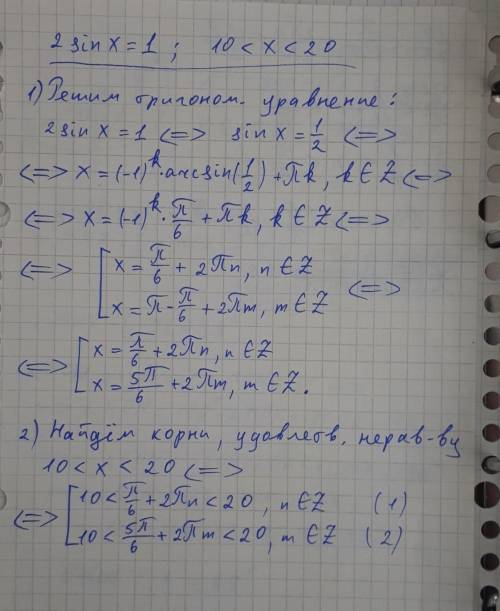 2 sin x = 1 ; 10 < x < 20
1) Решим тригоном. уравнение:
2 sin x = 1 <=> sin x = 1/2 <=>
<=> x = (-1)^k · arcsin(1/2) + πk, k ∈ Z <=>
<=> x = (-1)^k · π/6 + πk, k ∈ Z <=>
<=> [ x = π/6 + 2πn, n ∈ Z
x = π - π/6 + 2πm, m ∈ Z <=>
<=> [ x = π/6 + 2πn, n ∈ Z
x = 5π/6 + 2πm, m ∈ Z.
2) Найдём корни, удовлетв. нерав-ву
10 < x < 20 <=>
<=> [ 10 < π/6 + 2πn < 20, n ∈ Z (1)
10 < 5π/6 + 2πm < 20, m ∈ Z (2)